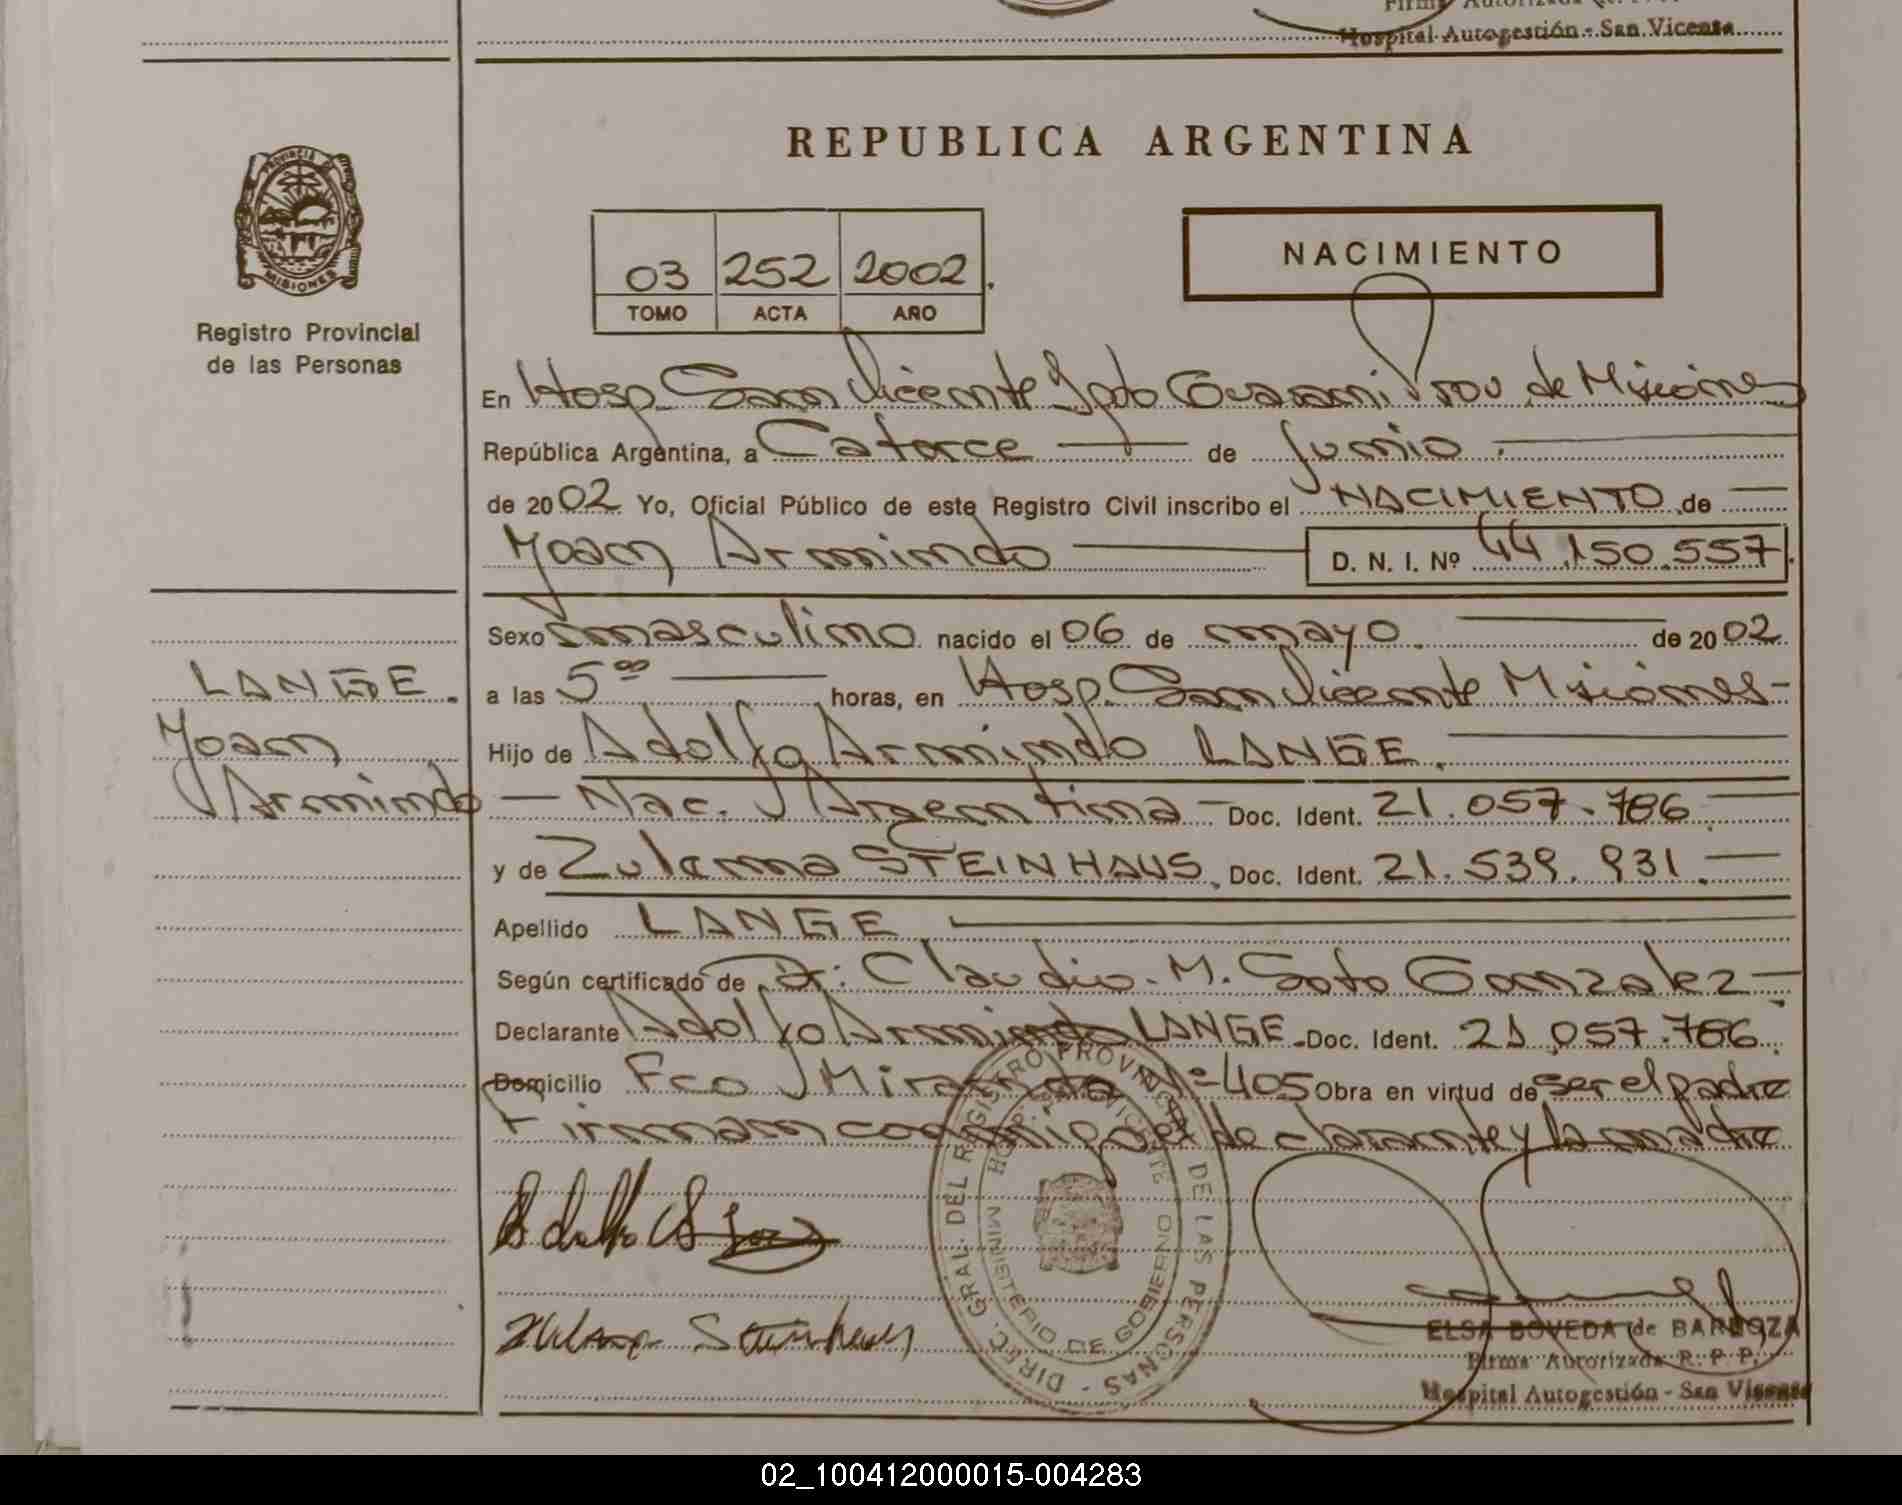 Firma Autorizada R.
Hospital Autogestión - San Vicente
REPUBLICA ARGENTINA
PROVINCIA DE MISIONES
Registro Provincial
de las Personas
03 252 2002
TOMO ACTA AÑO
NACIMIENTO
En Hosp. San Vicente Dpto Guarani Prov de Misiones
República Argentina, a Catorce de Junio
de 2002 Yo, Oficial Público de este Registro Civil inscribo el NACIMIENTO de
Yoan Armindo D. N. I. Nº 44.150.557
Sexo masculino nacido el 06 de mayo de 2002
LANGE.
Yoan
Armindo
a las 5⁰⁰ horas, en Hosp. San Vicente Misiones-
Hijo de Adolfo Armindo LANGE.
— Nac. Argentina - Doc. Ident. 21.057.786
y de Zulema STEINHAUS, Doc. Ident. 21.539.931.
Apellido LANGE
Según certificado de Dr: Claudio. M. Soto Gonzalez
Declarante Adolfo Armindo LANGE.Doc. Ident. 21.057.786.
Domicilio Fco Miranda Nº 405 Obra en virtud de ser el padre
Firman conmigo el declarante y la madre
DIREC. GRAL. DEL REGISTRO PROVINCIAL DE LAS PERSONAS -
HOSP. SAN VICENTE
MINISTERIO DE GOBIERNO
Zulema Steinhaus
ELSA BOVEDA de BARBOZA
Firma Autorizada R. P. P.
Hospital Autogestión - San Vicente
02_100412000015-004283